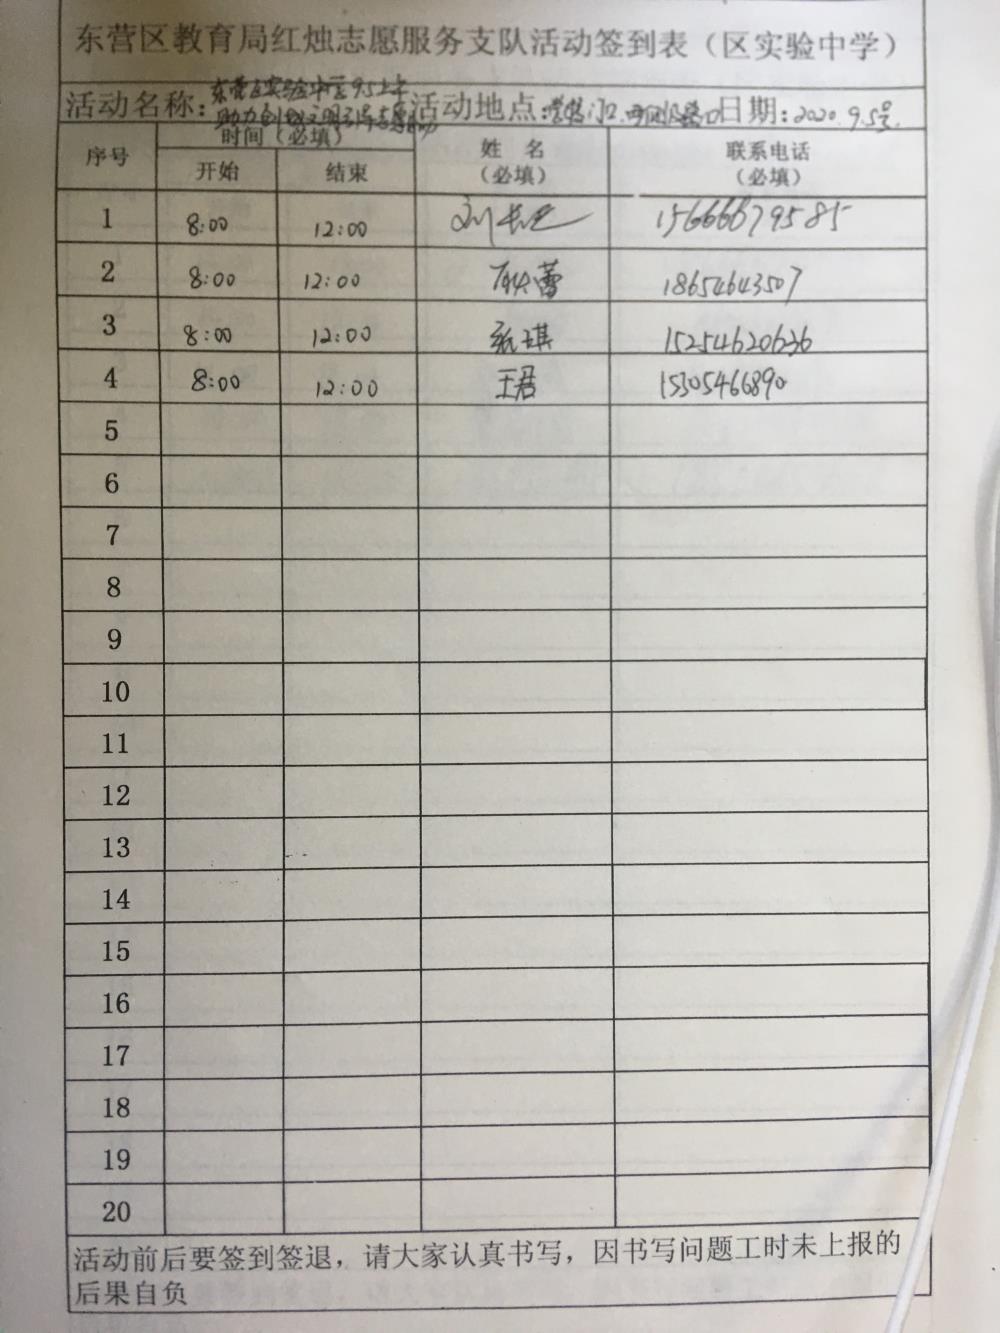 东营区教育局红烛志愿服务支队活动签到表（区实验中学）
东营区实验中学9.5上午
活动名称：助力创城文明引导志愿活动 活动地点： 路口 日期：2020.9.5号.
序号 时间（必填） 姓 名（必填） 联系电话（必填）
开始 结束
1 8:00 12:00 刘 15666679585
2 8:00 12:00 耿蕾 18654643507
3 8:00 12:00 张琪 15254620636
4 8:00 12:00 王君 15305466890
5
6
7
8
9
10
11
12
13
14
15
16
17
18
19
20
活动前后要签到签退，请大家认真书写，因书写问题工时未上报的
后果自负